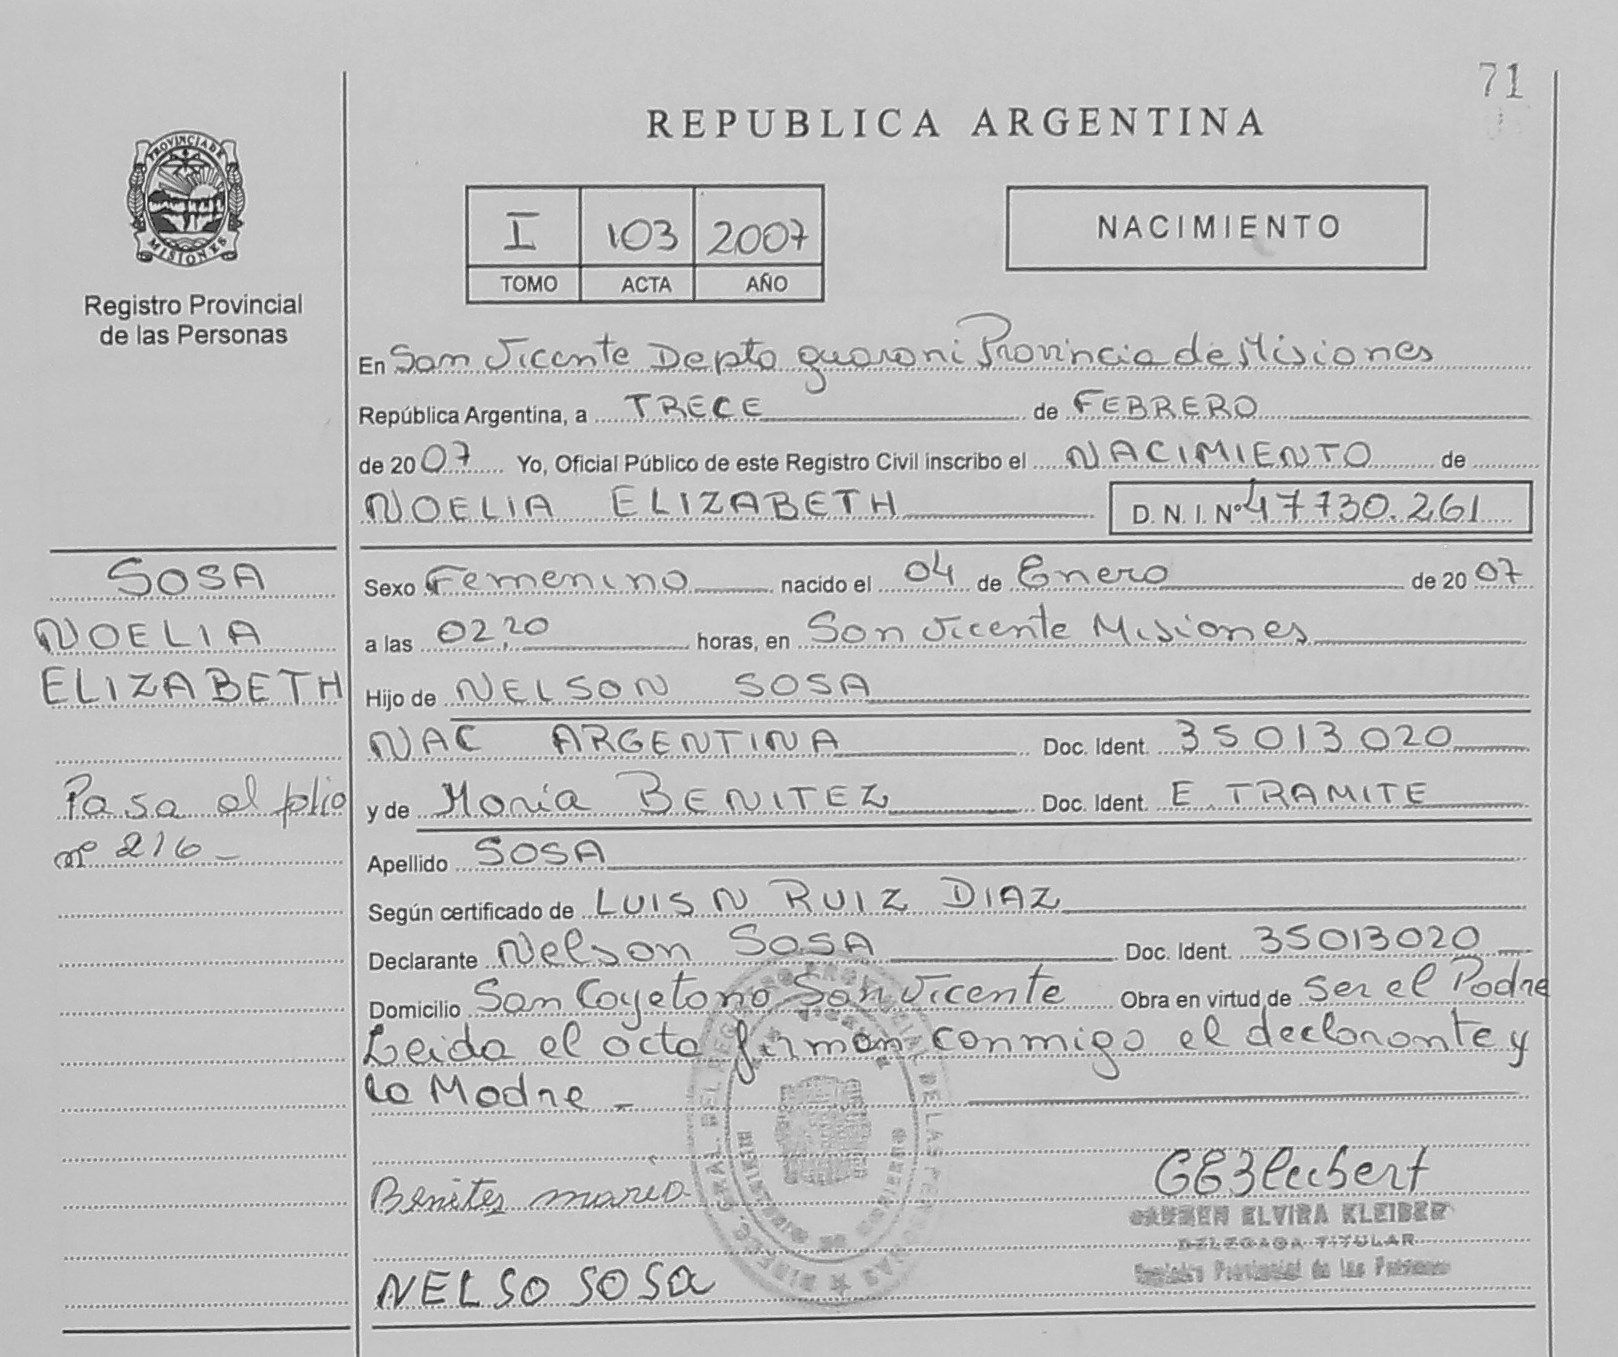 71
REPUBLICA ARGENTINA
PROVINCIA DE
MISIONES
Registro Provincial
de las Personas
I 103 2007
TOMO ACTA AÑO
NACIMIENTO
En San Vicente Depto guarani Provincia de Misiones
República Argentina, a TRECE de FEBRERO
de 2007 Yo, Oficial Público de este Registro Civil inscribo el NACIMIENTO de
NOELIA ELIZABETH D. N. I. Nº 47730.261
SOSA
NOELIA
ELIZABETH
Pasa al folio
nº 216 -
Sexo Femenino nacido el 04 de Enero de 2007
a las 02,20 horas, en San Vicente Misiones
Hijo de NELSON SOSA
NAC ARGENTINA Doc. Ident. 35013020
y de Maria BENITEZ Doc. Ident. E. TRAMITE
Apellido SOSA
Según certificado de LUIS N RUIZ DIAZ
Declarante Nelson SOSA Doc. Ident. 35013020
Domicilio San Cayetano San Vicente Obra en virtud de Ser el Padre
Leida el acta firman conmigo el declarante y
la Madre -
Benites maria
NELSO SOSA
CARMEN ELVIRA KLEIBER
DELEGADA TITULAR
Registro Provincial de las Personas